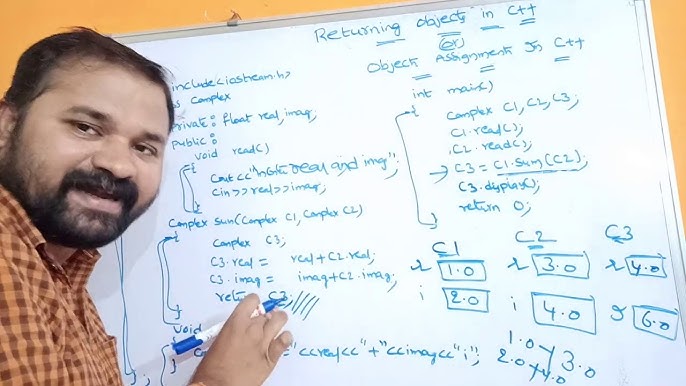 Returning objects in C++
(or)
Object Assignment in C++
include<iostream.h>
Complex
Private: float real, imag;
Public:
void read()
{
cout<<"Enter real and imag";
cin>>real>>imag;
}
Complex sum(Complex C1, Complex C2)
{
Complex C3;
C3.real = real+C2.real;
C3.imag = imag+C2.imag;
return C3;
}
void
{
="<<real<<"+"<<imag<<"i";
}
};
int main()
{
Complex C1, C2, C3;
C1.read();
C2.read();
→ C3 = C1.sum(C2);
C3.display();
return 0;
}
C1 C2 C3
r 1.0 r 3.0 r 4.0
i 2.0 i 4.0 6.0
1.0
2.0 3.0
4.0